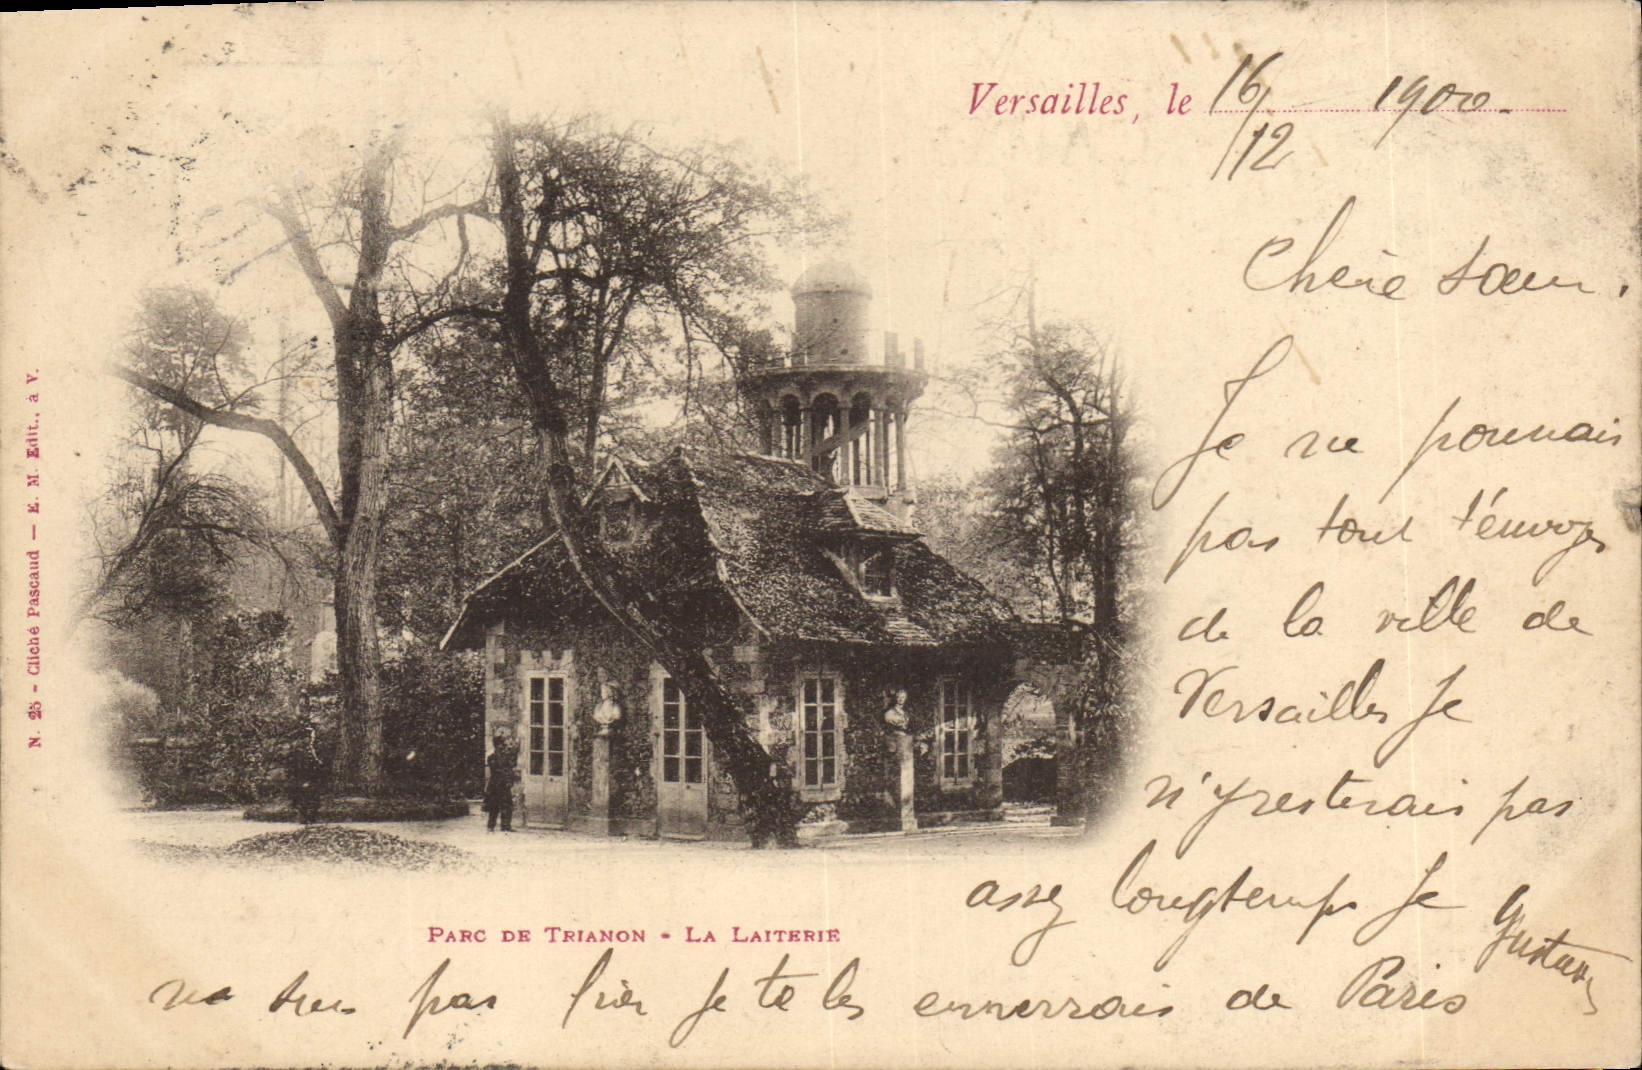 Versailles, le 16/12 1900.
Chère sœur,
Je ne pourrais
pas tout t'envoyer
de la ville de
Versailles Je
n'y resterais pas
assez longtemps Je
Gustave
ne suis pas fier je te les enverrais de Paris
PARC DE TRIANON - LA LAITERIE
N. 25 - Cliché Pascaud — E. M. Edit., à V.